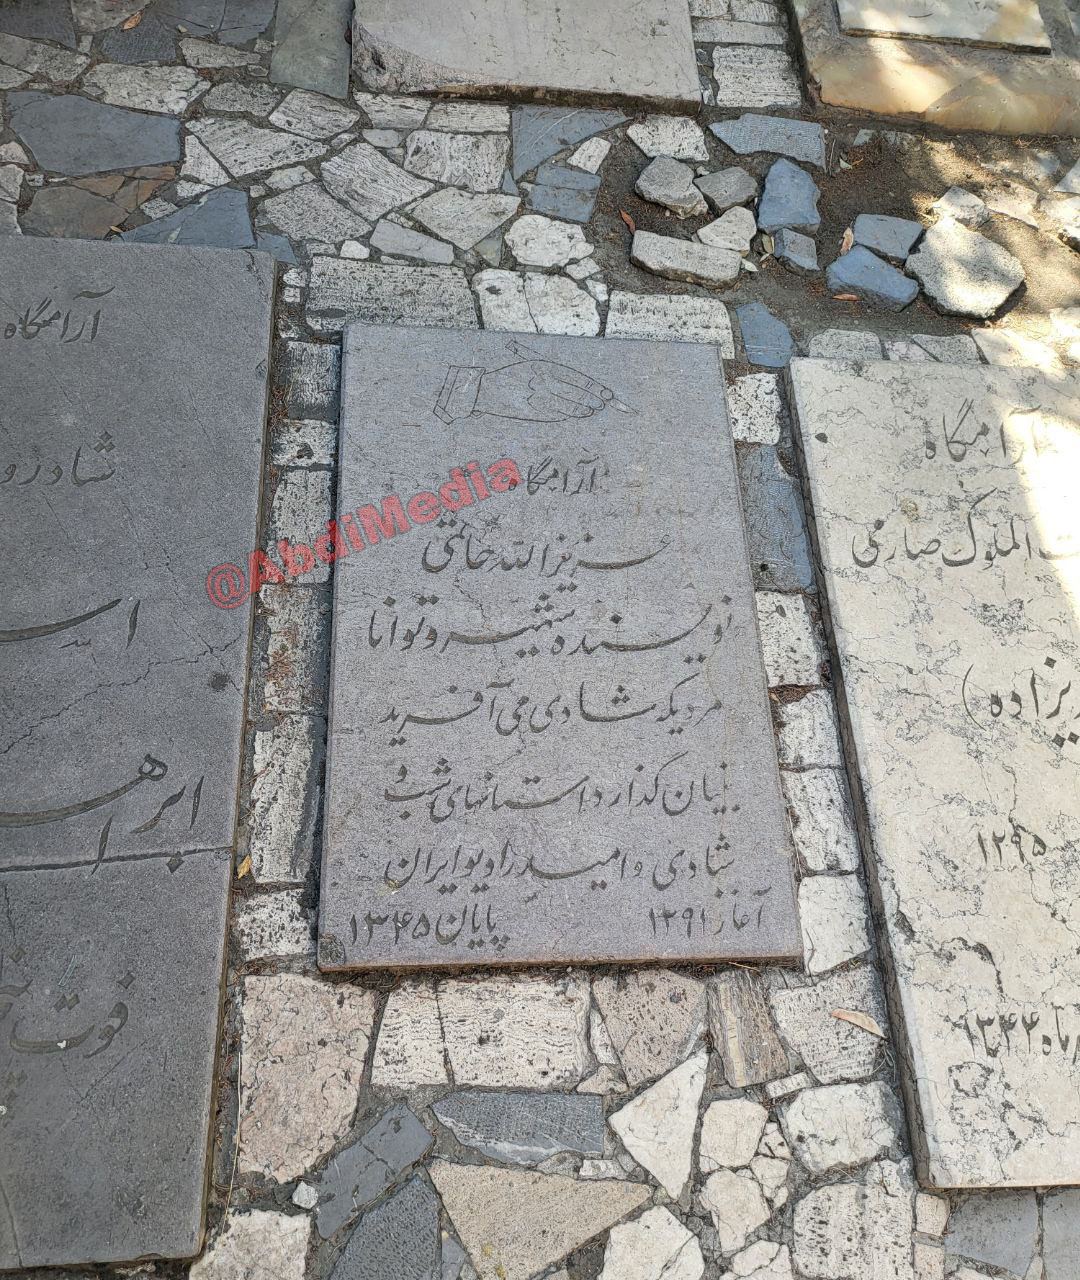 آرامگاه
عزیزالله حاتمی
نویسنده شهیر و توانا
مردیکه شادی می آفرید
بنیان گذار داستانهای شب و
شادی و امید رادیو ایران
آغاز ۱۲۹۱ پایان ۱۳۴۵
@AbdiMedia
آرامگاه
شادرو
ابراه
فوت
آرامگاه
الملوک صارمی
۱۲۹۵
۱۳۴۲